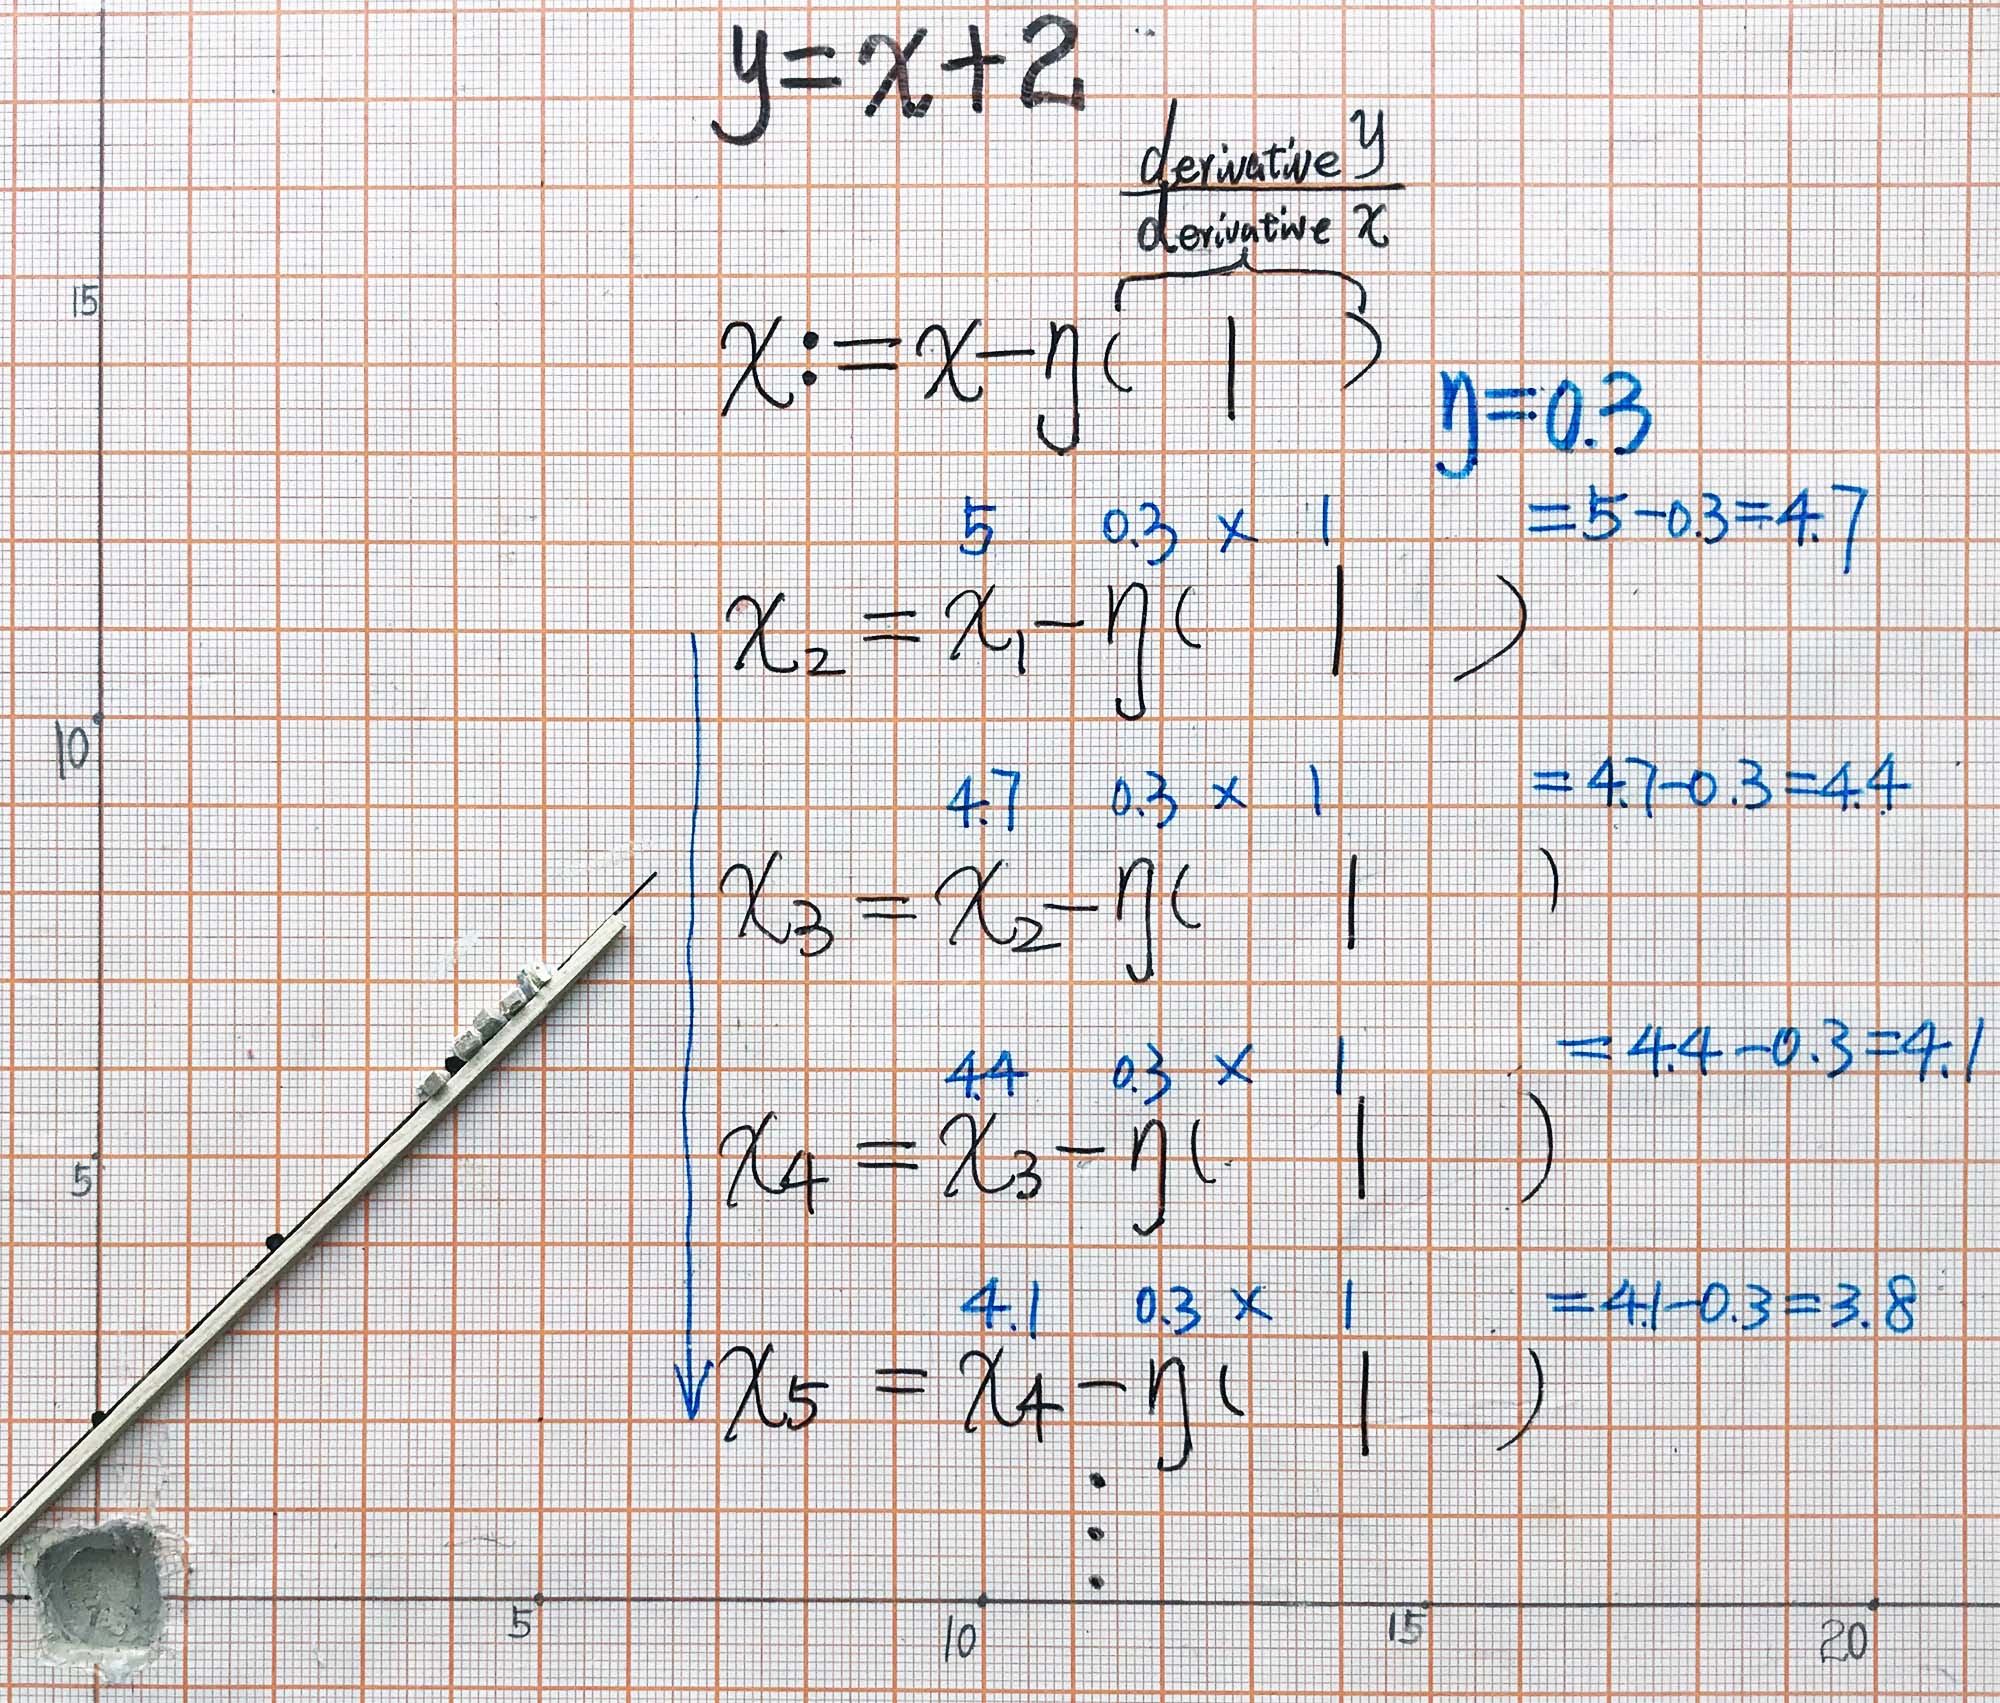 y=x+2
derivative y
derivative x
15
x:=x-η( 1 )
η=0.3
5 0.3 × 1 =5-0.3=4.7
x₂ = x₁-η( 1 )
10
4.7 0.3 × 1 =4.7-0.3=4.4
x₃ = x₂-η( 1 )
4.4 0.3 × 1 =4.4-0.3=4.1
x₄ = x₃-η( 1 )
5
4.1 0.3 × 1 =4.1-0.3=3.8
x₅ = x₄-η( 1 )
5 10 15 20